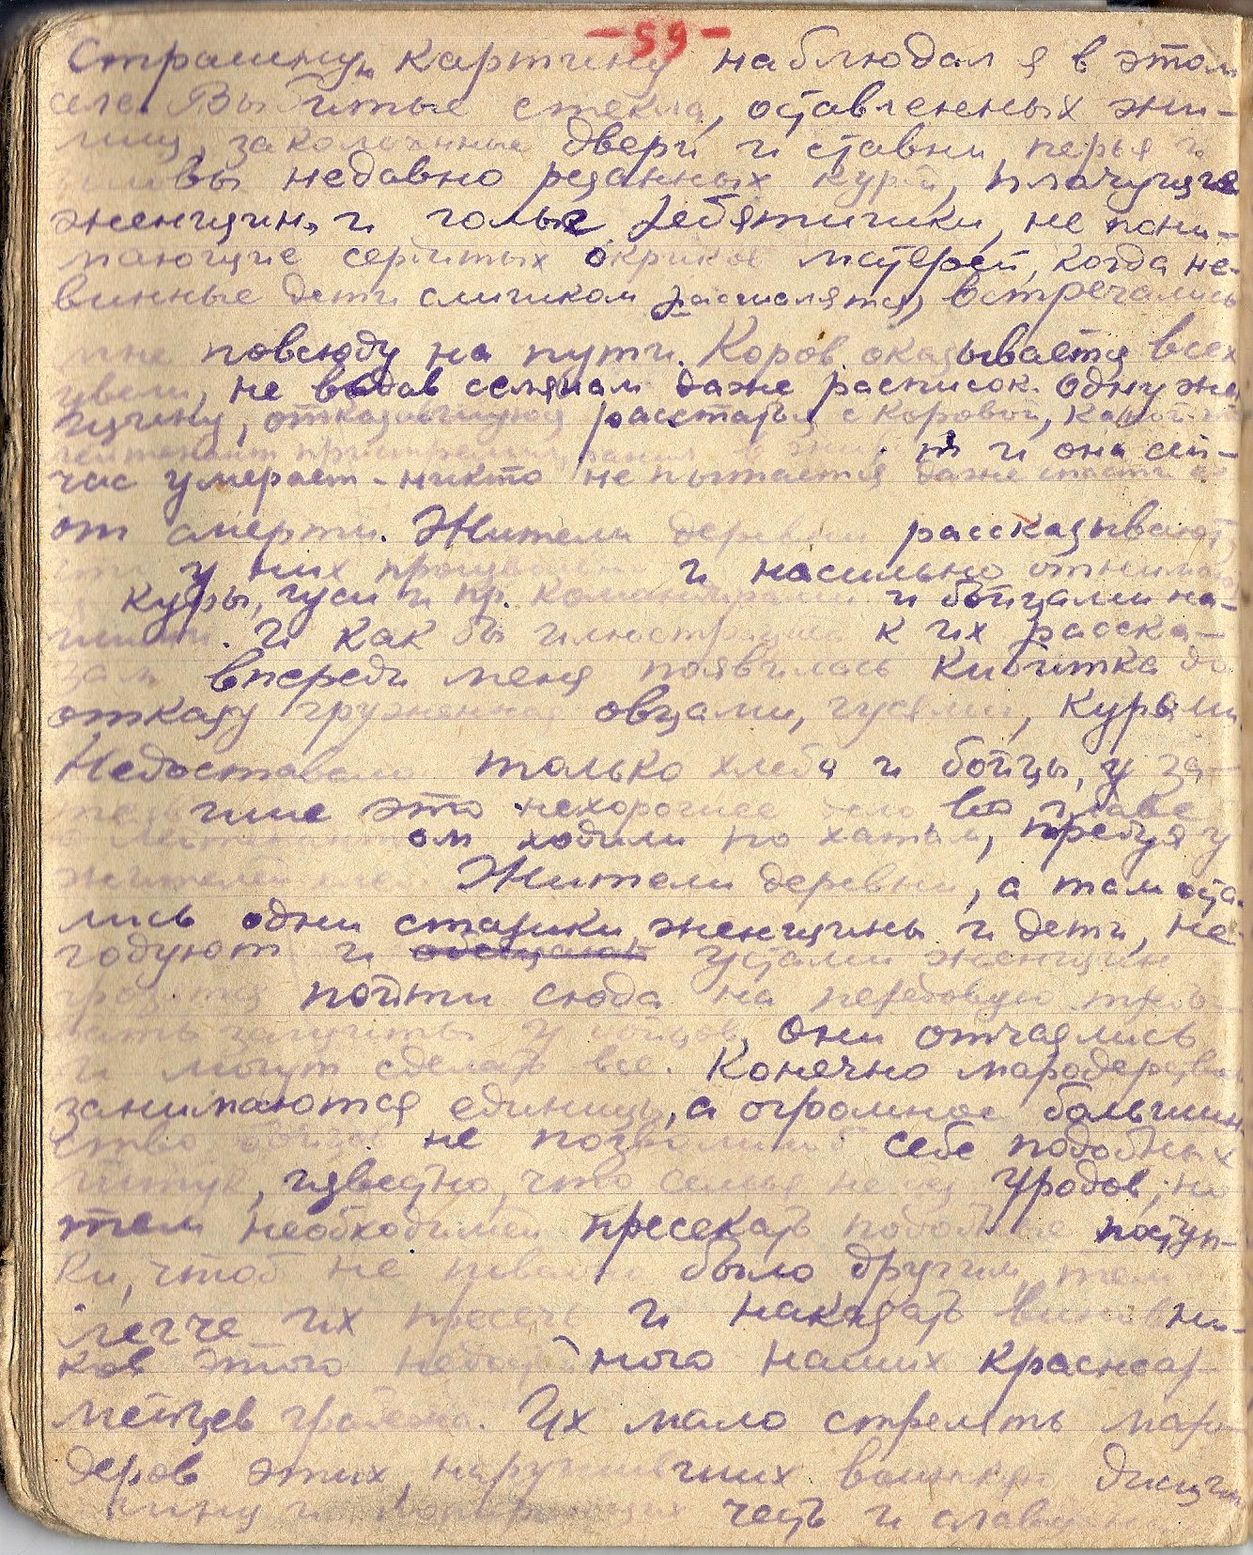 -59-
Страшную картину наблюдал я в этом
селе. Выбитые стекла, оставленных жи-
лищ, заколоченные двери и ставни, перья и
вы недавно резанных курей, плачущие
женщины и голые ребятишки, не пони-
мающие сердитых окриков матерей, когда не-
винные дети слишком расшалятся, встречались
мне повсюду на пути. Коров оказывается всех
увели, не выдав селянам даже расписок. Одну жен
щину, отказавшуюся расстаться с коровой, какой-то
лейтенант и она сей-
час умирает - никто не пытается даже спасти ее
от смерти. Жители деревни рассказывают
что у них и насильно отнимают
куры, гуси и пр. командирами и бойцами на-
шими. И как бы иллюстрацией к их расска-
зам впереди меня появилась кибитка до
отказу груженная овцами, гусями, курами
Недоставало только хлеба и бойцы, у за-
теявшие это нехорошее дело, во главе
с лейтенантом ходили по хатам, требуя у
жителей хлеба. Жители деревни, а там оста-
лись одни старики, женщины и дети, не-
годуют и обещают устами женщин
грозятся пойти сюда на передовую
у бойцов, они отчаялись
и могут сделать все. Конечно мародерством
занимаются единицы, а огромное большин
ство бойцов не позволяют себе подобных
штук, известно, что семья не без уродов, но
тем необходимей пресекать подобные поступ-
ки, чтоб не повадно было другим, тем
легче их пресечь и наказать виновни-
ков этого наших красноар-
мейцев Их мало стрелять маро
деров этих, нарушивших воинскую дисципл
ину и честь и славу